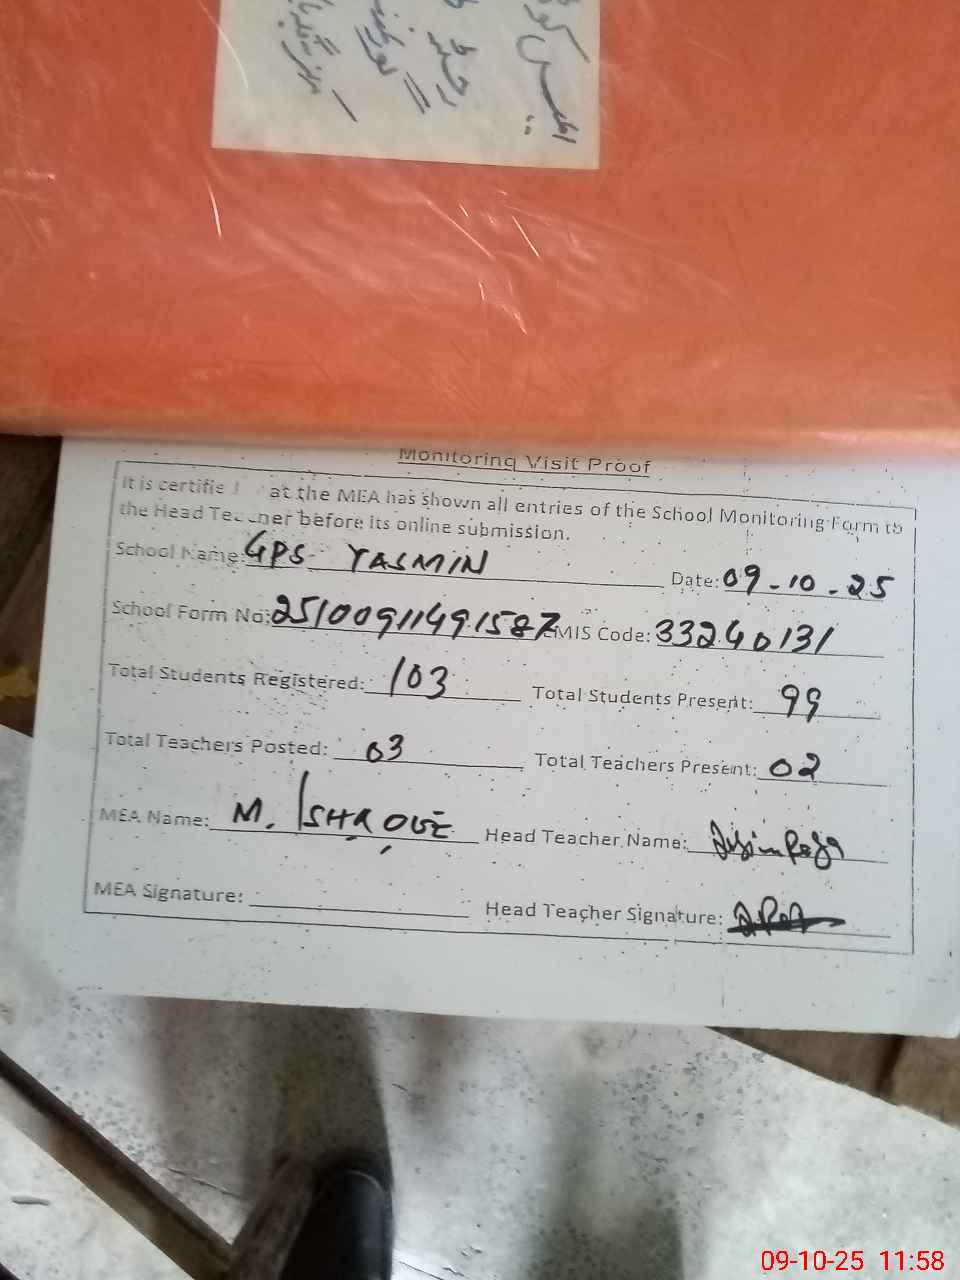 Monitoring Visit Proof
It is certifie at the MEA has shown all entries of the School Monitoring Form to
the Head Teacher before its online submission.
School Name: GPS YASMIN Date: 09-10-25
School Form No: 25100911491587 EMIS Code: 33240131
Total Students Registered: 103 Total Students Present: 99
Total Teachers Posted: 03 Total Teachers Present: 02
MEA Name: M. Head Teacher Name:
MEA Signature: Head Teacher Signature:
09-10-25 11:58